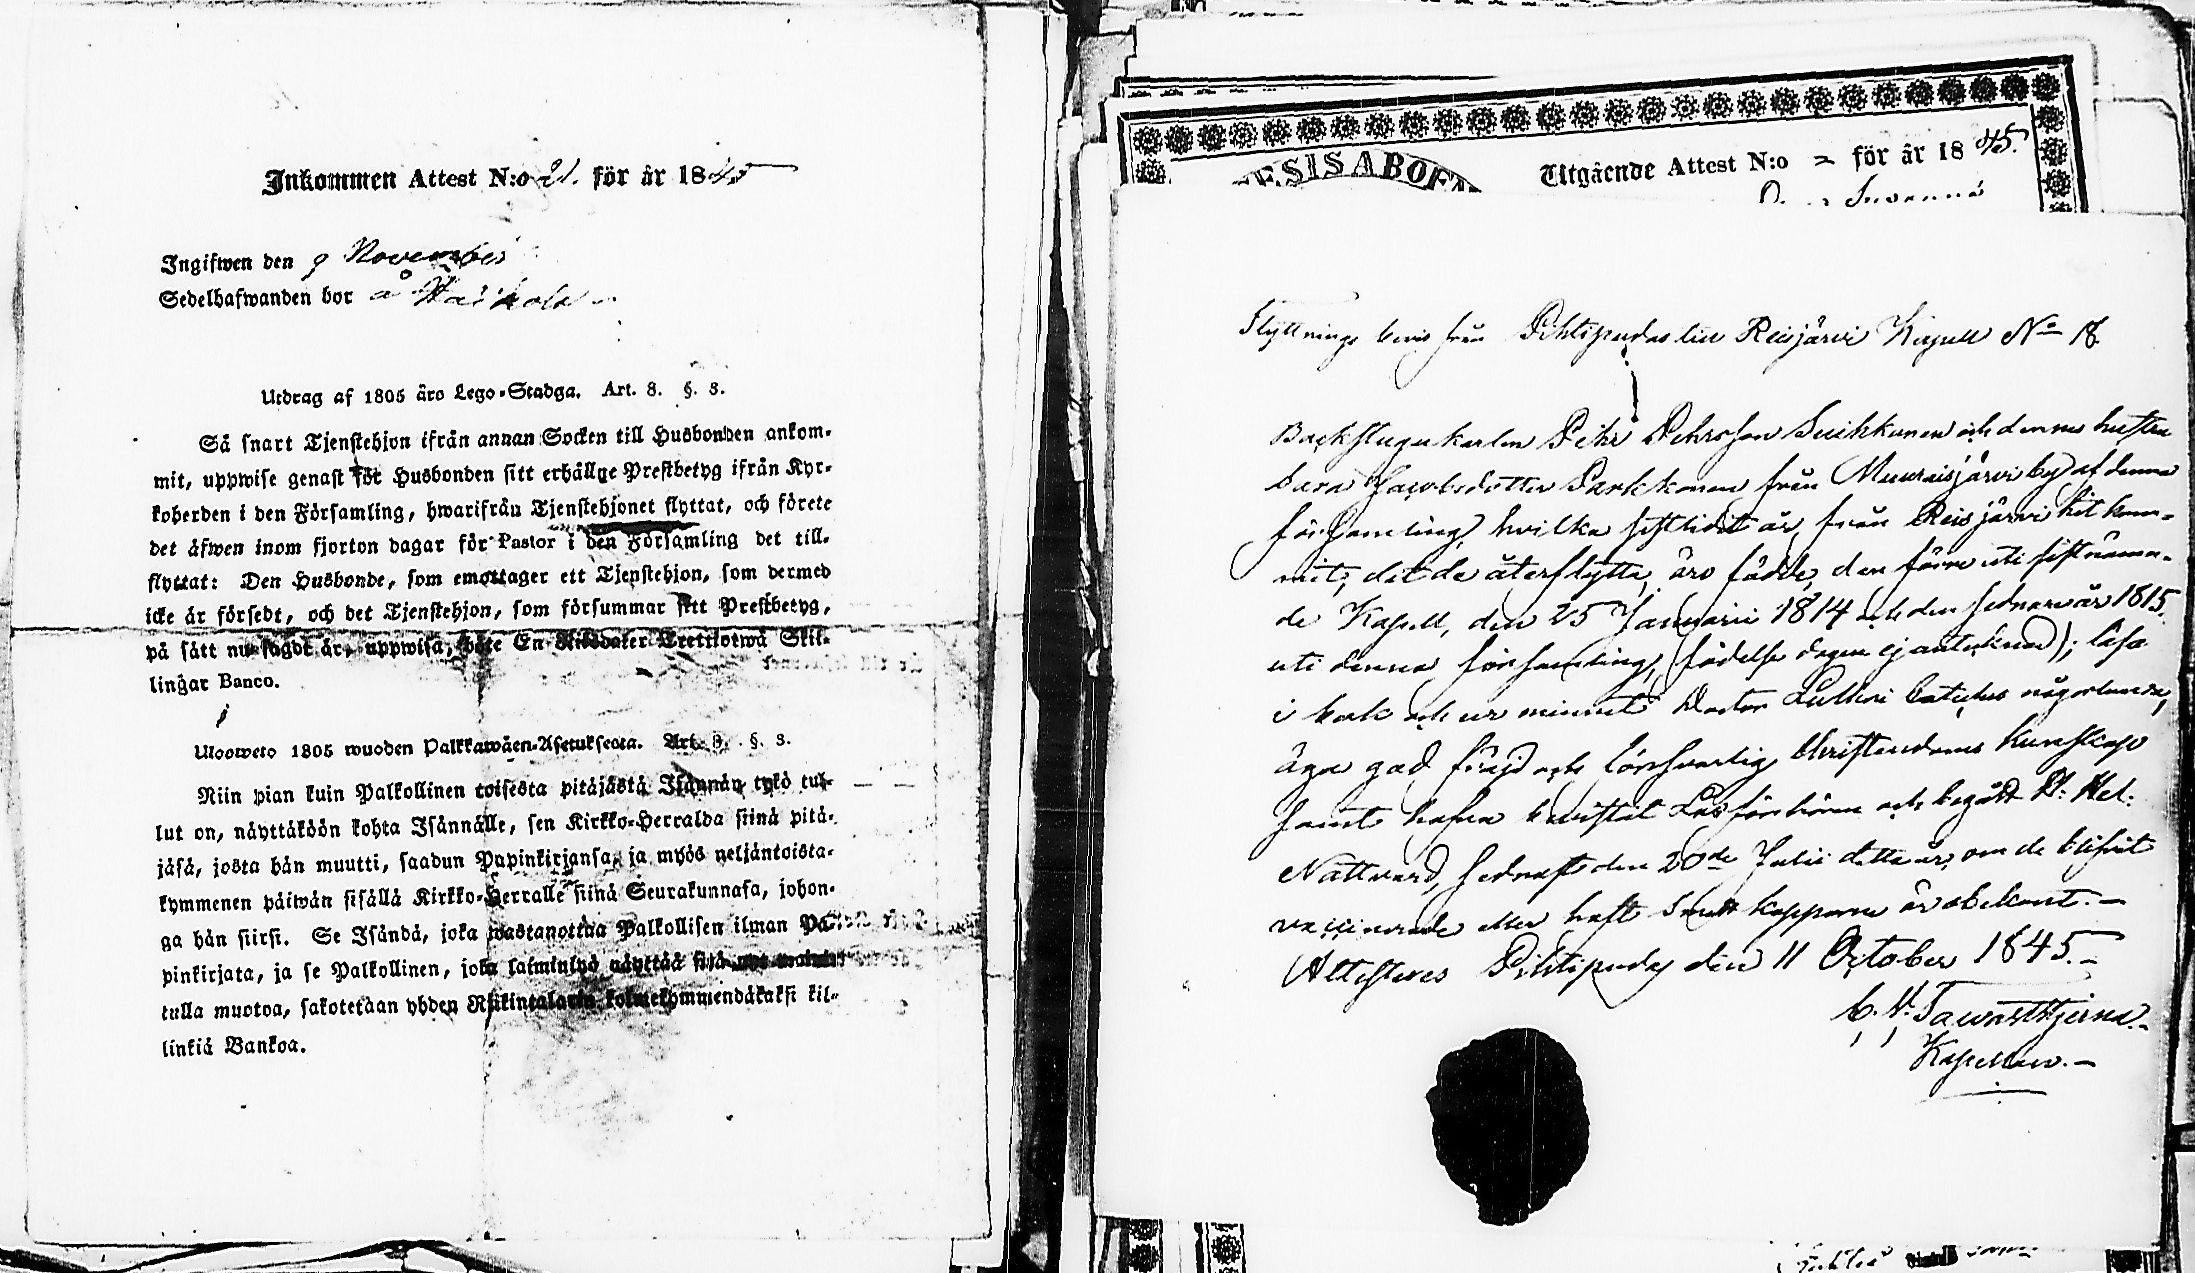 Inkommen Attest N:o 21. för år 1845
Ingifwen den 9 November
Sedelhafwanden bor å
Utdrag af 1805 åro Lego-Stadga. Art. 8. §. 3.
Så snart Tjenstehjon ifrån annan Socken till Husbonden ankom-
mit, uppwise genast för Husbonden sitt erhållne Prestbetyg ifrån Kyr-
koherden i den Församling, hwarifrån Tjenstehjonet flyttat, och förete
det åfwen inom fjorton dagar för Pastor i den Församling det till-
flyttat: Den Husbonde, som emottager ett Tjenstehjon, som dermed
icke är försedt, och det Tjenstehjon, som försummar sitt Prestbetyg,
på sätt nu sagdt är, uppwisa, böte En Riksdaler Trettiotwå Skil-
lingar Banco.
Ulosweto 1805 wuoden Palkkawåen-Asetuksesta. Art. 8. §. 3.
Niin pian kuin Palkollinen toisesta pitäjästä Isännän tykö tul-
lut on, näyttäköön kohta Isännälle, sen Kirkko-Herralda siinä pitä-
jäsä, josta hän muutti, saadun Papinkirjansa, ja myös neljäntoista-
kymmenen päiwän sisällä Kirkko-Herralle siinä Seurakunnasa, johon-
ga hän siirsi. Se Isändä, joka wastanottaa Palkollisen ilman Pa-
pinkirjata, ja se Palkollinen, joka laiminlyö näyttää sitä
tulla muotoa, sakotetaan yhden Riikintalarin kolmekymmendäkaksi kil-
linkiä Bankoa.
ESIS ABOEN
Utgående Attest N:o 2 för år 1845.
Susanna
Flyttnings bevis från Pihtipudas till Reisjärvi Kapell No 18
Backstugukarlen Pehr Pehrsson Suihkonen och dennes hustru
Sara Jacobsdotter Parkkonen från Muurasjärvi by af denna
församling, hvilka sistlidit år från Reisjärvi hit kom-
mit, dit de återflytta, äro födde, den förre uti sistnämn-
de Kapell, den 25 Januarii 1814 och den sednare år 1815.
uti denna församling, (födelse dagen ej antecknad); läsa
i bok och ur minnet Doctor Lutheri Cateches någorlunda,
äga god frejd och försvarlig Christendoms kunskap
samt hafva bevistat Läsförhören och begått H: Hel:
Nattvard, sednast den 20de Julii detta år, om de blifvit
vaccinerade eller haft Smittkopporne är obekant. —
Attesteras Pihtipudas den 11 October 1845. —
C. H. Tawaststjerna. —
Kapellan. —